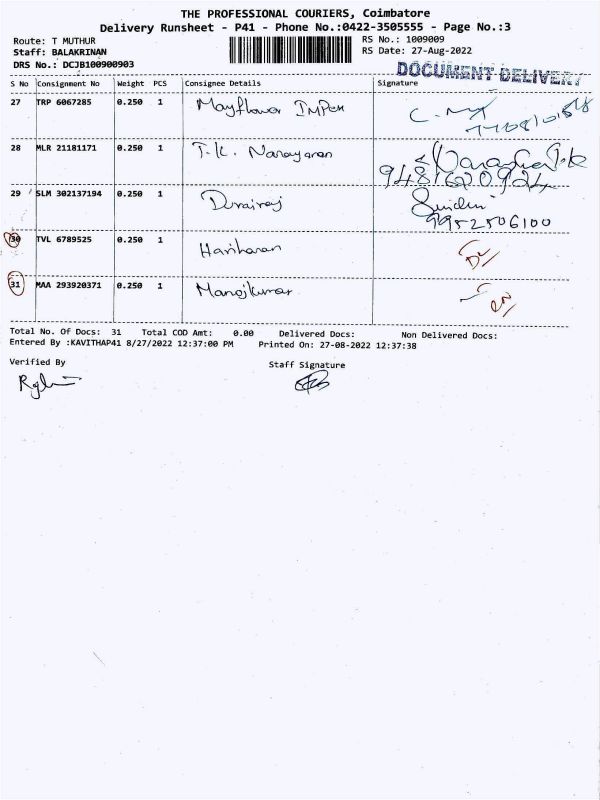 THE PROFESSIONAL COURIERS, Coimbatore
Delivery Runsheet - P41 - Phone No.:0422-3505555 - Page No.:3
Route: T MUTHUR RS No.: 1009009
Staff: BALAKRINAN RS Date: 27-Aug-2022
DRS No.: DCJB100900903 DOCUMENT DELIVERY
S No Consignment No Weight PCS Consignee Details Signature
27 TRP 6067285 0.250 1 Mayflower
28 MLR 21181171 0.250 1 T.K. Narayanan
9481620924
29 SLM 302137194 0.250 1 Durairaj
9952506100
30 TVL 6789525 0.250 1 Hariharan
31 MAA 293920371 0.250 1 Manojkumar
Total No. Of Docs: 31 Total COD Amt: 0.00 Delivered Docs: Non Delivered Docs:
Entered By :KAVITHAP41 8/27/2022 12:37:00 PM Printed On: 27-08-2022 12:37:38
Verified By Staff Signature